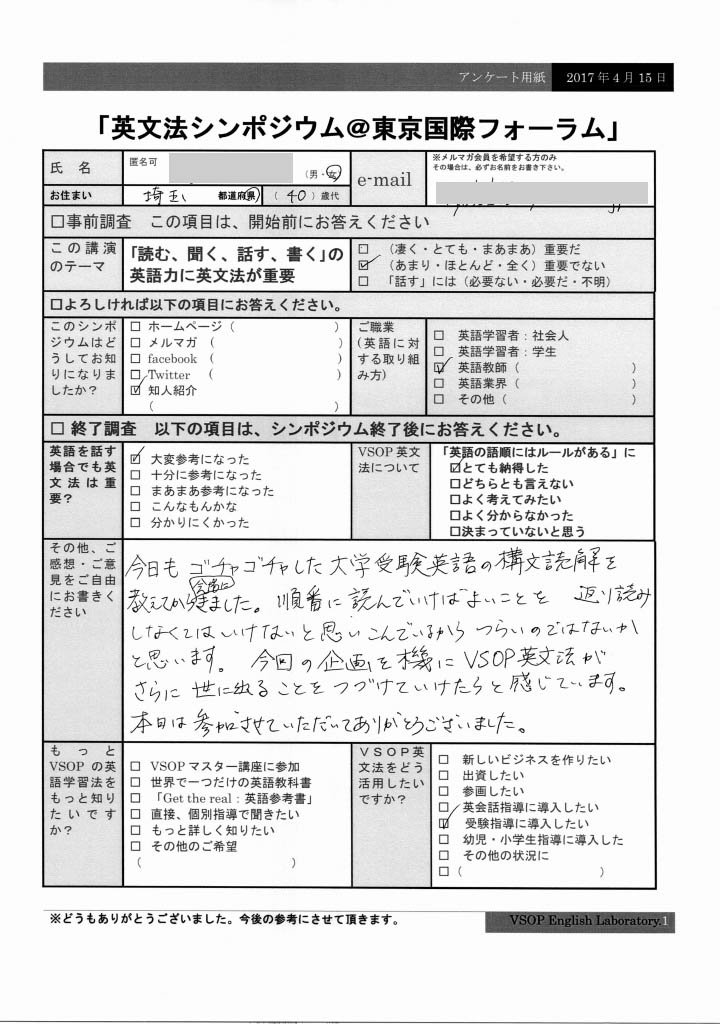 アンケート用紙 2017年4月15日
「英文法シンポジウム＠東京国際フォーラム」
氏 名 匿名可 （男・女） e-mail ※メルマガ会員を希望する方のみ
その場合は、必ずお名前をお書き下さい。
お住まい 埼玉 都道府県 （ 40 ）歳代
□事前調査 この項目は、開始前にお答えください
この講演のテーマ
「読む、聞く、話す、書く」の
英語力に英文法が重要
□ （凄く・とても・まあまあ）重要だ
☑ （あまり・ほとんど・全く）重要でない
□ 「話す」には（必要ない・必要だ・不明）
□よろしければ以下の項目にお答えください。
このシンポ
ジウムはど
うしてお知
りになりま
したか？
□ ホームページ（ ）
□ メルマガ （ ）
□ facebook （ ）
□ Twitter （ ）
☑ 知人紹介
（ ）
ご職業
(英語に対
する取り組
み方)
□ 英語学習者：社会人
□ 英語学習者：学生
☑ 英語教師（ ）
□ 英語業界（ ）
□ その他（ ）
□ 終了調査 以下の項目は、シンポジウム終了後にお答えください。
英語を話す
場合でも英
文法は重
要？
☑ 大変参考になった
□ 十分に参考になった
□ まあまあ参考になった
□ こんなもんかな
□ 分かりにくかった
VSOP 英文
法について
「英語の語順にはルールがある」に
☑とても納得した
□どちらとも言えない
□よく考えてみたい
□よく分からなかった
□決まっていないと思う
その他、ご
感想・ご意
見をご自由
にお書きく
ださい
今日も ゴチャゴチャした 大学受験英語の構文読解を
会場に
教えてから来ました。順番に読んでいけばよいことを 返り読み
しなくてはいけないと思いこんでいるから つらいのではないか
と思います。 今回の企画を機に VSOP英文法が
さらに 世に出ることをつづけていけたらと感じています。
本日は参加させていただいてありがとうございました。
もっと
VSOP の英
語学習法を
もっと知り
たいです
か？
□ VSOP マスター講座に参加
□ 世界で一つだけの英語教科書
□ 「Get the real：英語参考書」
□ 直接、個別指導で聞きたい
□ もっと詳しく知りたい
□ その他のご希望
（ ）
ＶＳＯＰ英
文法をどう
活用したい
ですか？
□ 新しいビジネスを作りたい
□ 出資したい
□ 参画したい
□ 英会話指導に導入したい
☑ 受験指導に導入したい
□ 幼児・小学生指導に導入した
□ その他の状況に
□（ ）
※どうもありがとうございました。今後の参考にさせて頂きます。
VSOP English Laboratory.1